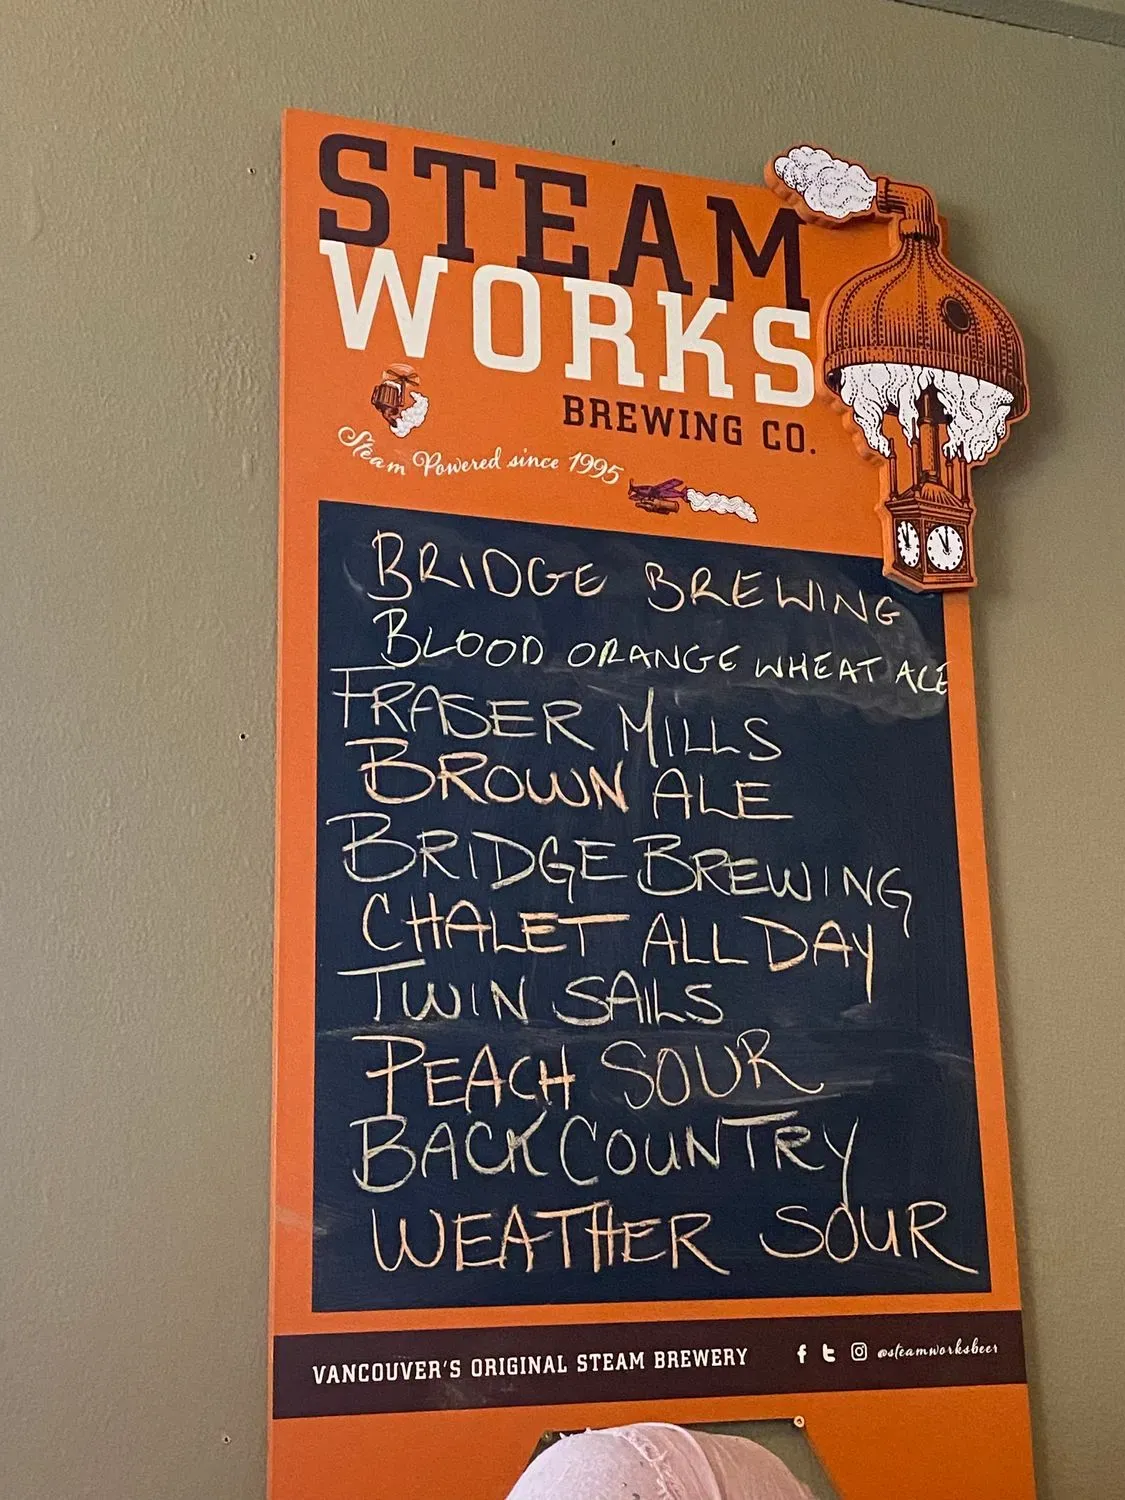 STEAM
WORKS
BREWING CO.
Steam Powered since 1995
BRIDGE BREWING
BLOOD ORANGE WHEAT ALE
FRASER MILLS
BROWN ALE
BRIDGE BREWING
CHALET ALL DAY
TWIN SAILS
PEACH SOUR
BACKCOUNTRY
WEATHER SOUR
VANCOUVER'S ORIGINAL STEAM BREWERY @steamworksbeer